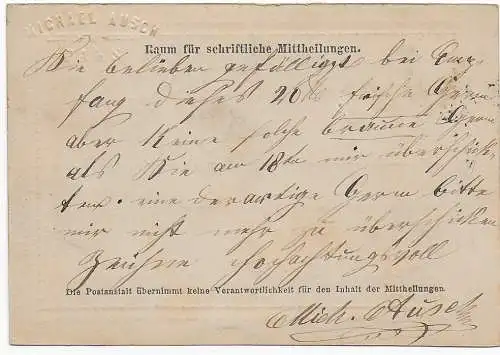 MICHAEL AUSCH
Raum für schriftliche Mittheilungen.
Sie belieben gefälligst bei Emp
fang dieses 20 frische Germ
aber keine solche braune Germ
als Sie am 18tn mir überschick
ten. eine derartige Germ bitte
mir nicht mehr zu überschicken
Zeichne hochachtungsvoll
Die Postanstalt übernimmt keine Verantwortlichkeit für den Inhalt der Mittheilungen.
Mich. Ausch